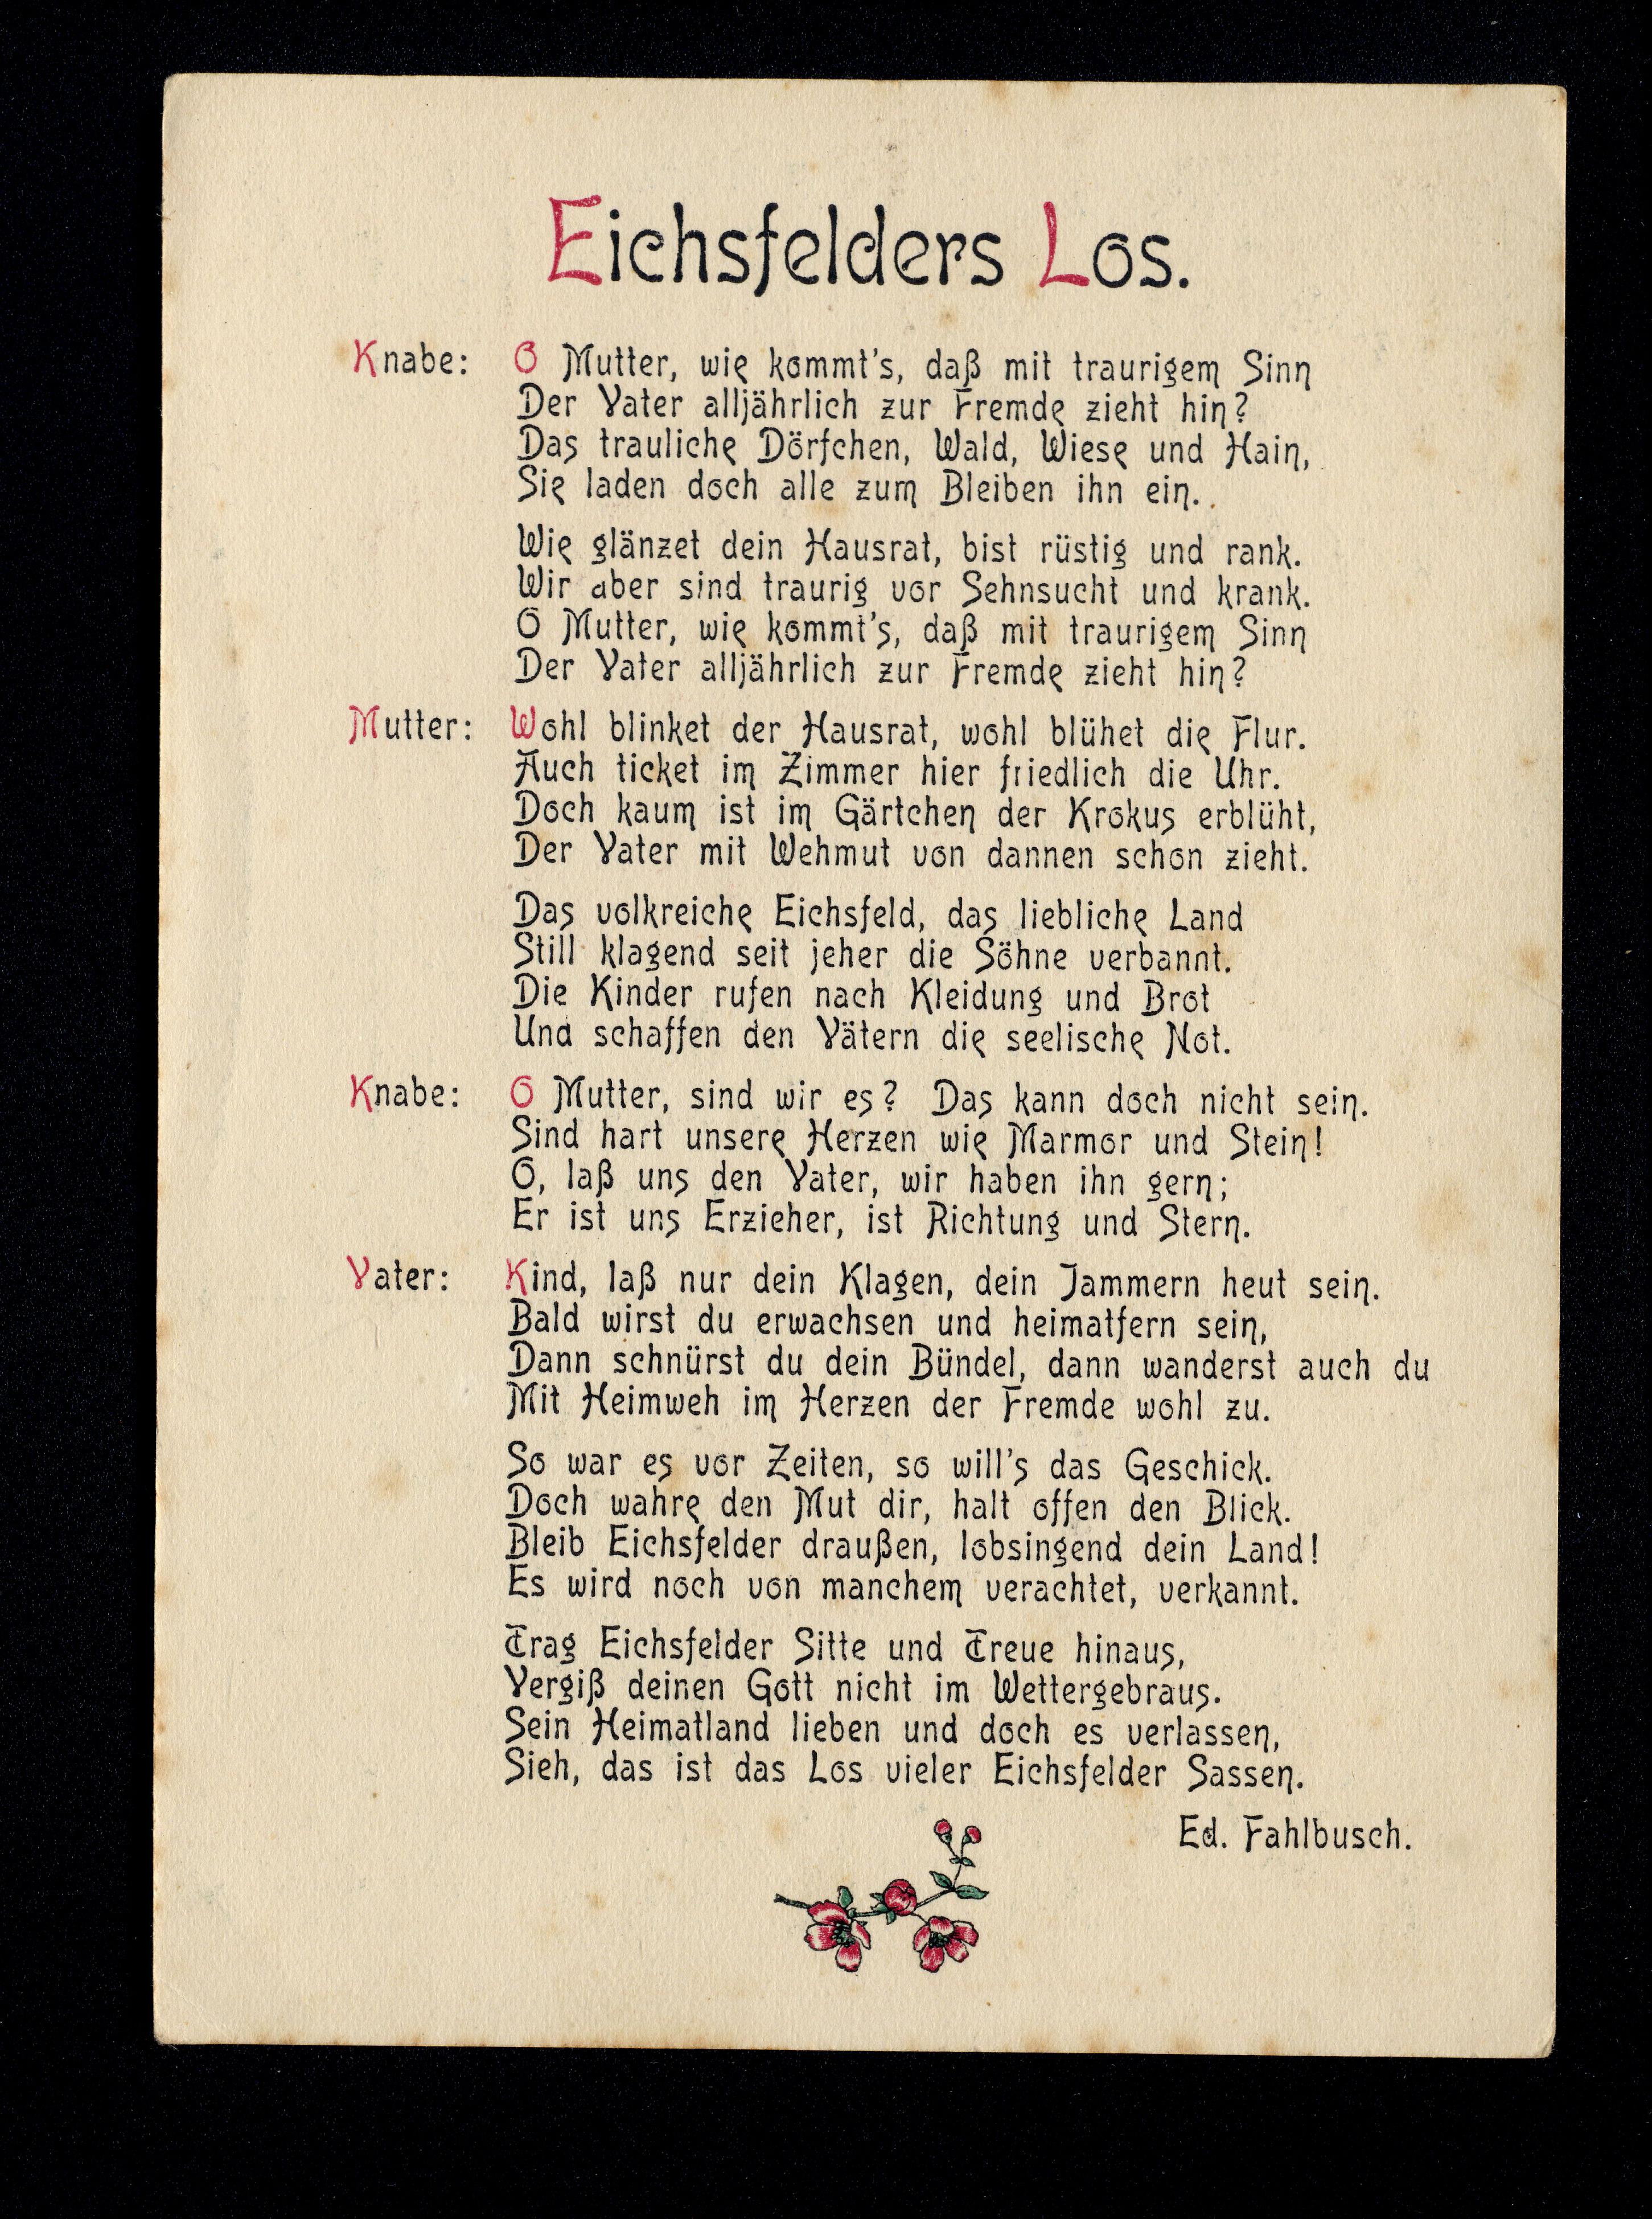 Eichsfelders Los.
Knabe: O Mutter, wie kommt's, daß mit traurigem Sinn
Der Vater alljährlich zur Fremde zieht hin?
Das trauliche Dörfchen, Wald, Wiese und Hain,
Sie laden doch alle zum Bleiben ihn ein.
Wie glänzet dein Hausrat, bist rüstig und rank.
Wir aber sind traurig vor Sehnsucht und krank.
O Mutter, wie kommt's, daß mit traurigem Sinn
Der Vater alljährlich zur Fremde zieht hin?
Mutter: Wohl blinket der Hausrat, wohl blühet die Flur.
Auch ticket im Zimmer hier friedlich die Uhr.
Doch kaum ist im Gärtchen der Krokus erblüht,
Der Vater mit Wehmut von dannen schon zieht.
Das volkreiche Eichsfeld, das liebliche Land
Still klagend seit jeher die Söhne verbannt.
Die Kinder rufen nach Kleidung und Brot
Und schaffen den Vätern die seelische Not.
Knabe: O Mutter, sind wir es? Das kann doch nicht sein.
Sind hart unsere Herzen wie Marmor und Stein!
O, laß uns den Vater, wir haben ihn gern;
Er ist uns Erzieher, ist Richtung und Stern.
Vater: Kind, laß nur dein Klagen, dein Jammern heut sein.
Bald wirst du erwachsen und heimatfern sein,
Dann schnürst du dein Bündel, dann wanderst auch du
Mit Heimweh im Herzen der Fremde wohl zu.
So war es vor Zeiten, so will's das Geschick.
Doch wahre den Mut dir, halt offen den Blick.
Bleib Eichsfelder draußen, lobsingend dein Land!
Es wird noch von manchem verachtet, verkannt.
Trag Eichsfelder Sitte und Treue hinaus,
Vergiß deinen Gott nicht im Wettergebraus.
Sein Heimatland lieben und doch es verlassen,
Sieh, das ist das Los vieler Eichsfelder Sassen.
Ed. Fahlbusch.